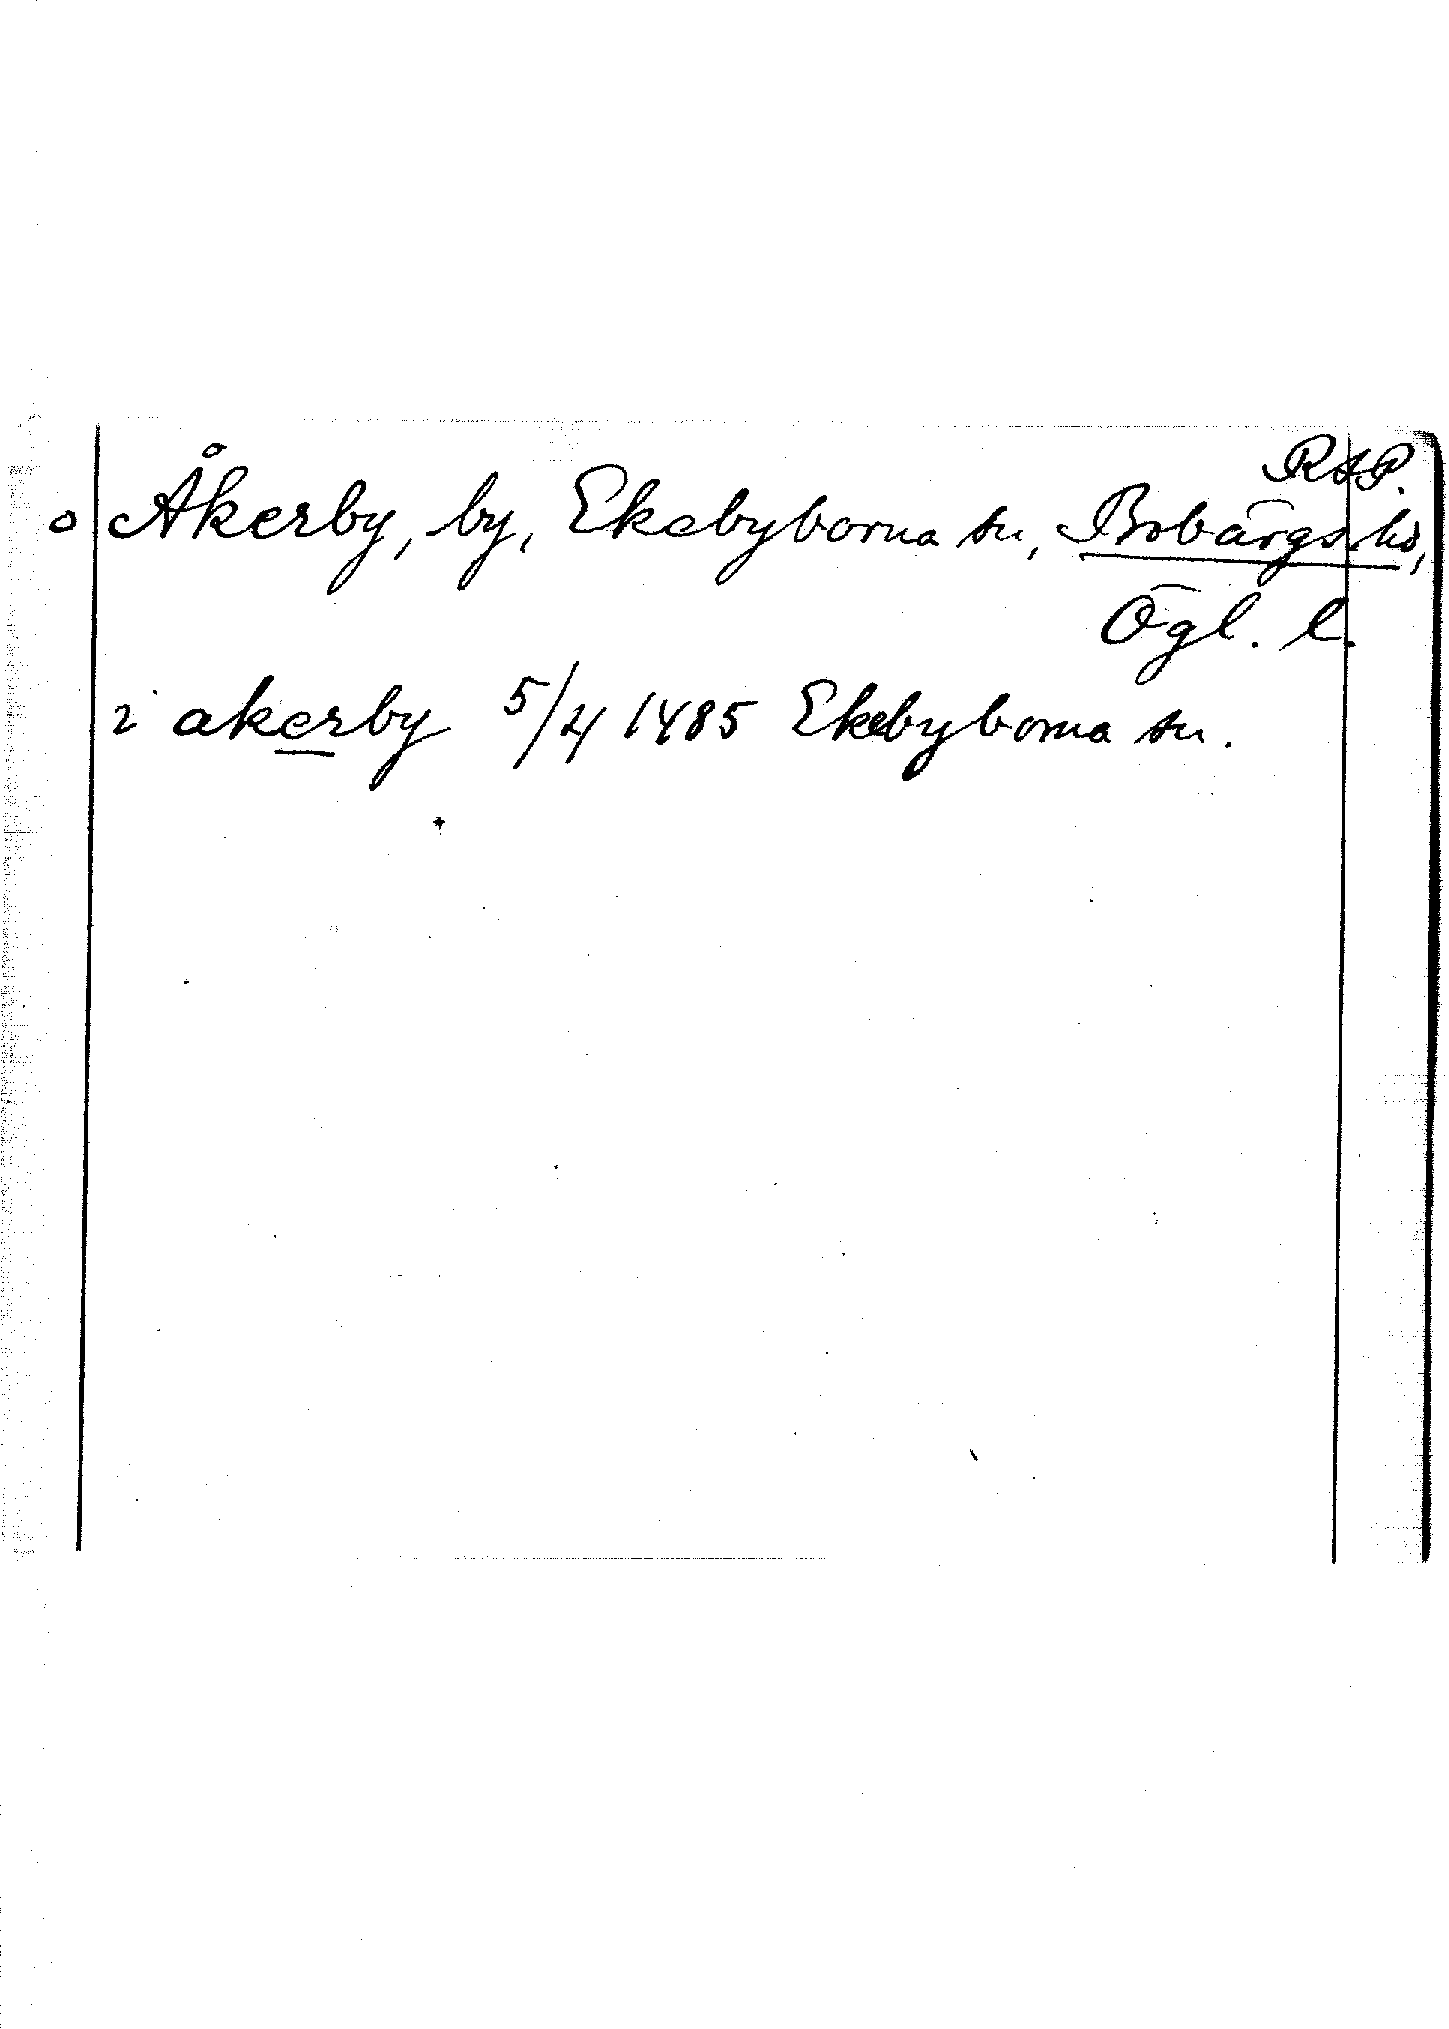 RAP.
o Åkerby, by, Ekebyborna sn, Bobärgs hd,
Ögl. l.
i akerby 5/4 1485 Ekebyborna sn.